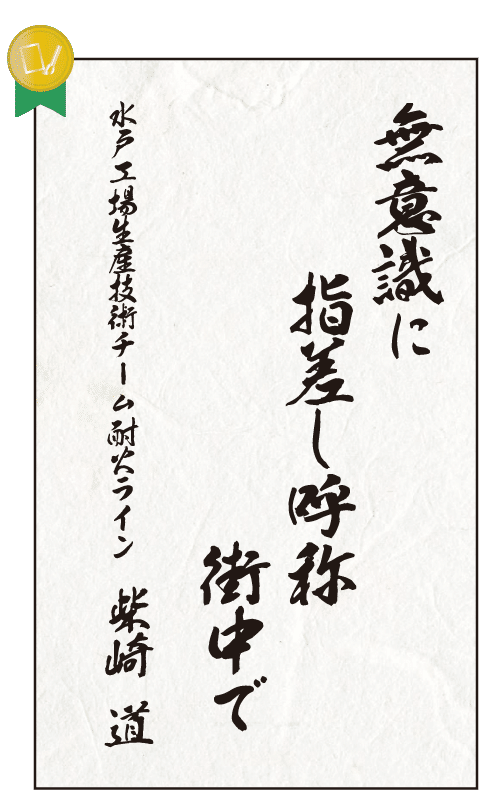 無意識に
指差し呼称
街中で
水戸工場生産技術チーム耐火ライン 柴崎 道